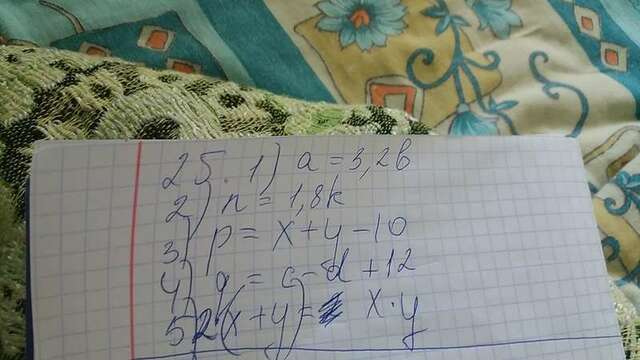 25. 1) a = 3,2b
2) n = 1,8k
3) p = x + y - 10
4) q = c - d + 12
5 2(x + y) = x · y